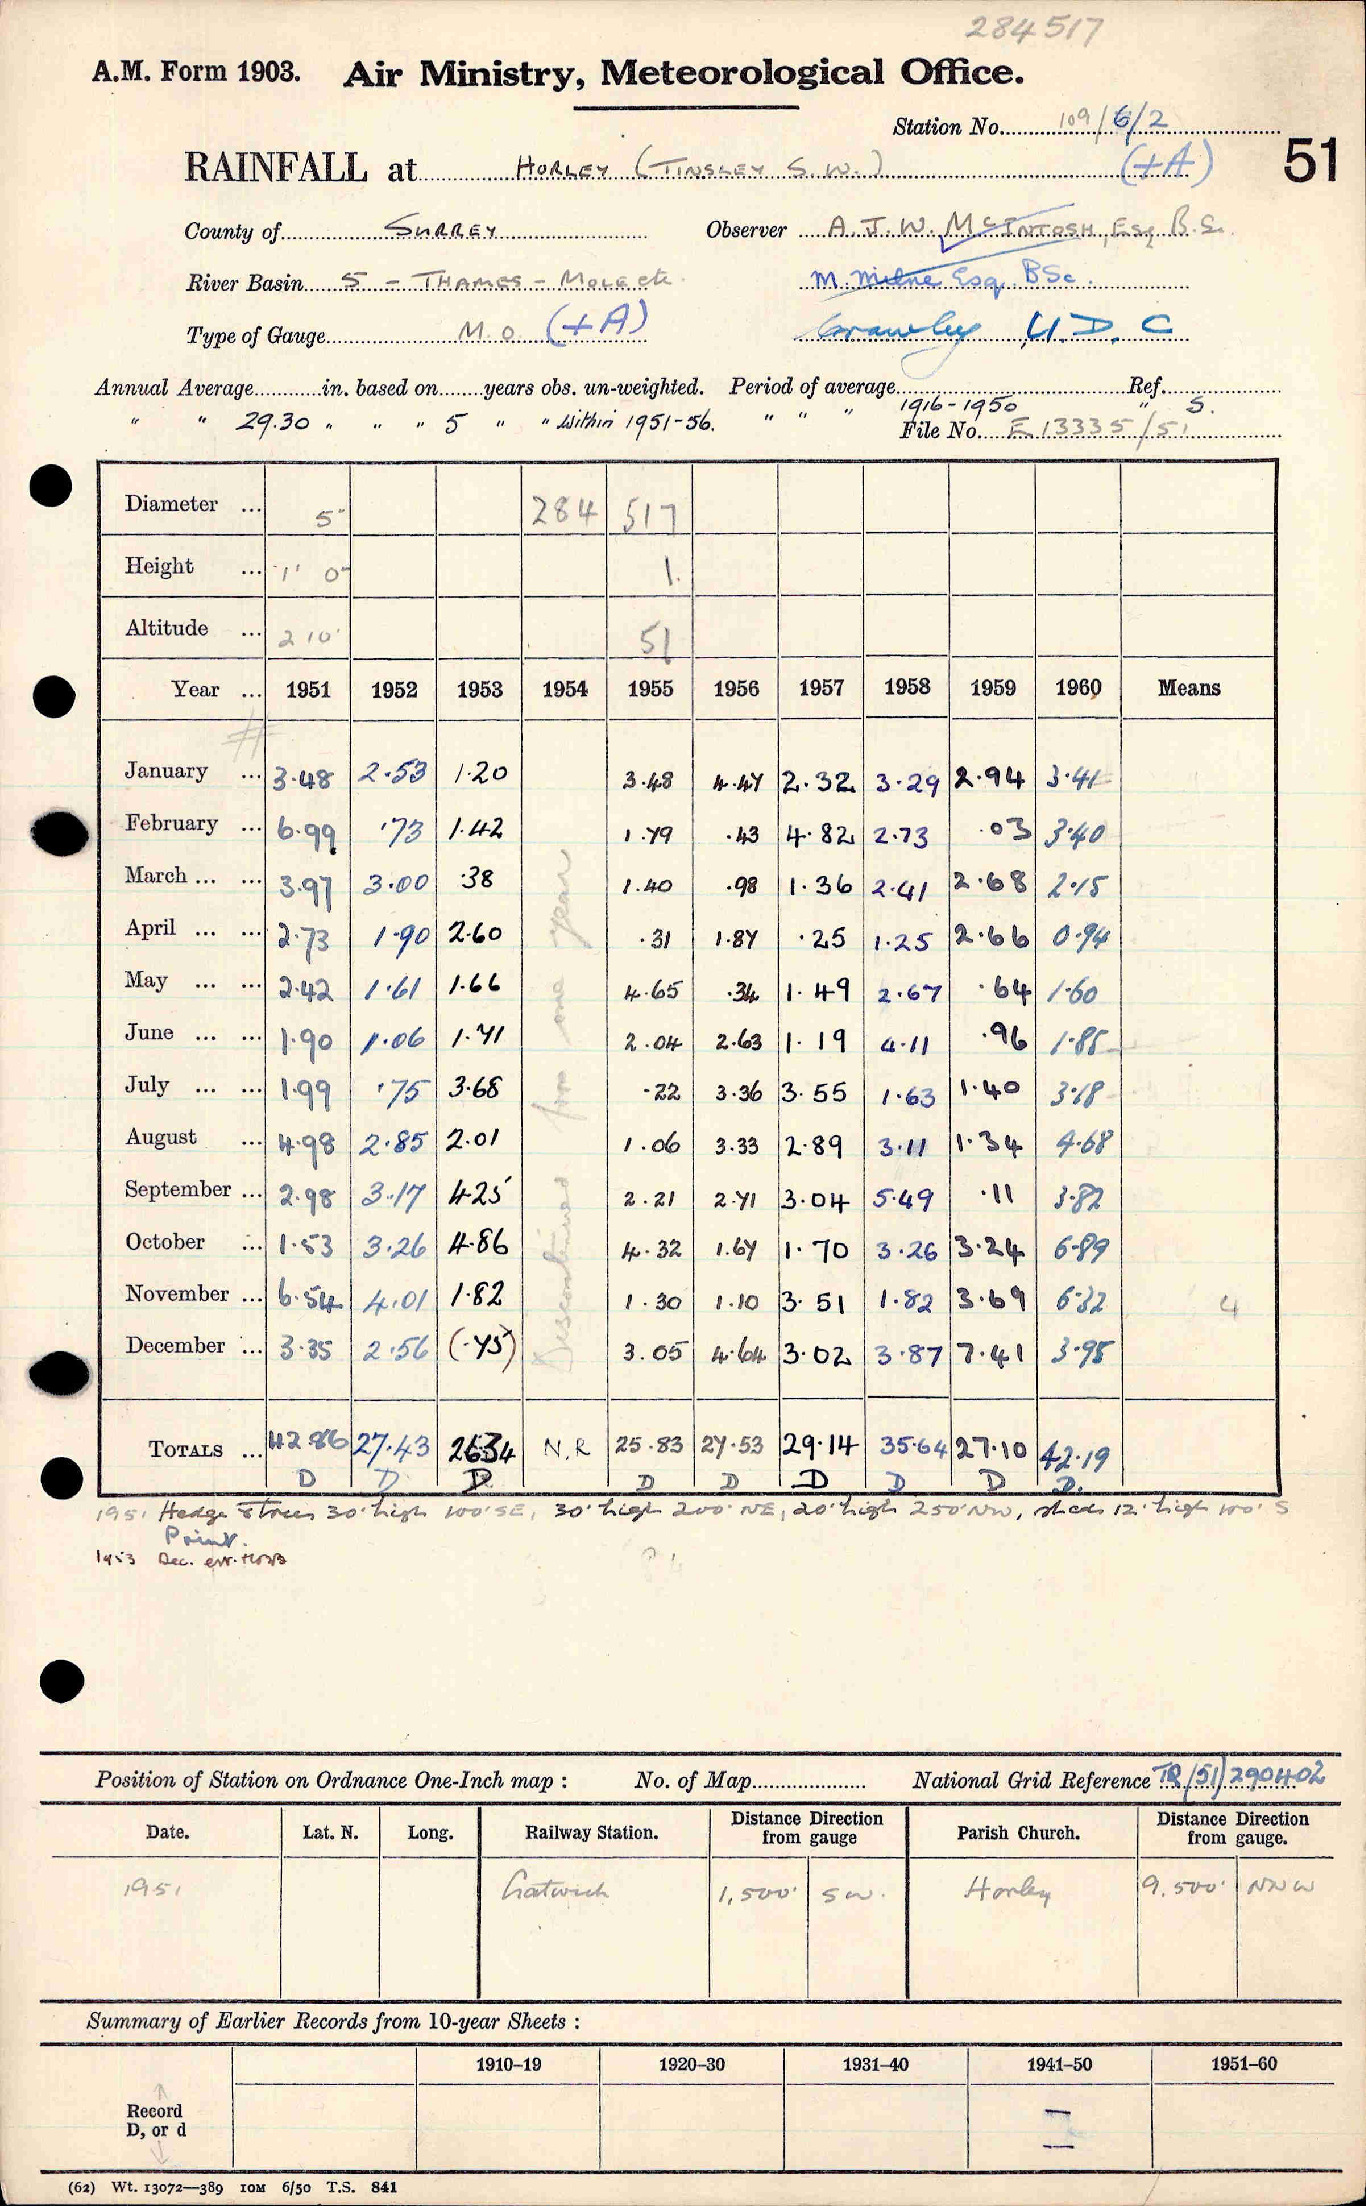 284517
A.M. Form 1903. Air Ministry, Meteorological Office.
Station No. 109/6/2
RAINFALL at HORLEY (TINSLEY S.W.) (+A) 51
County of SURREY Observer A.J.W. MCINTOSH, Esq B.Sc.
River Basin 5 - THAMES - MOLE etc. M. Milne Esq. BSc.
Type of Gauge M.O. (+A) Crawley U.D.C
Annual Average in. based on years obs. un-weighted. Period of average Ref.
" " 29.30 " " " 5 " " Within 1951-56. " " " 1916-1950 " S.
File No. E 13335/51
Diameter ... 5" 284 517
Height ... 1' 0" 1.
Altitude ... 210' 51
Year ... 1951 1952 1953 1954 1955 1956 1957 1958 1959 1960 Means
#
January ... 3.48 2.53 1.20 3.48 4.47 2.32 3.29 2.94 3.41
February ... 6.99 .73 1.42 1.79 .43 4.82 2.73 .03 3.40
March ... ... 3.97 3.00 .38 1.40 .98 1.36 2.41 2.68 2.15
April ... ... 2.73 1.90 2.60 .31 1.87 .25 1.25 2.66 0.94
May ... ... 2.42 1.61 1.66 4.65 .34 1.49 2.67 .64 1.60
June ... ... 1.90 1.06 1.71 2.04 2.63 1.19 4.11 .96 1.85
July ... ... 1.99 .75 3.68 .22 3.36 3.55 1.63 1.40 3.18
August ... 4.98 2.85 2.01 1.06 3.33 2.89 3.11 1.34 4.68
September ... 2.98 3.17 4.25 2.21 2.71 3.04 5.49 .11 3.82
October ... 1.53 3.26 4.86 4.32 1.67 1.70 3.26 3.24 6.89
November ... 6.54 4.01 1.82 1.30 1.10 3.51 1.82 3.69 6.32 4
December ... 3.35 2.56 (.75) 3.05 4.64 3.02 3.87 7.41 3.98
Discontinued for one year
TOTALS ... 42.86 27.43 26.34 N.R 25.83 27.53 29.14 35.64 27.10 42.19
D D D D D D D D D.
1951 Hedge & trees 30' high 100' SE, 30' high 200' NE, 20' high 250' NW, shed 12' high 100' S
Print.
1953 Dec.
Position of Station on Ordnance One-Inch map : No. of Map National Grid Reference TQ (51) 290402
Date. Lat. N. Long. Railway Station. Distance Direction from gauge Parish Church. Distance Direction from gauge.
1951 Gatwick 1,500' SW. Horley 9,500' NNW
Summary of Earlier Records from 10-year Sheets :
1910–19 1920–30 1931–40 1941–50 1951–60
Record
D, or d
(62) Wt. 13072—389 10M 6/50 T.S. 841